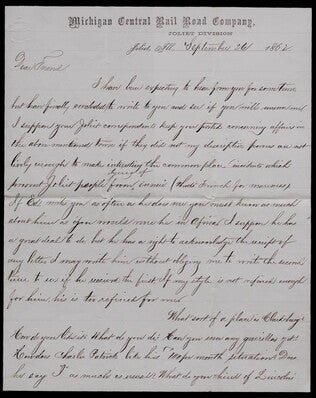 Michigan Central Rail Road Company,
JOLIET DIVISION
Joliet, Ill. September 26 1862
Dear Friend
I have been expecting to hear from you for some time
but have finally concluded to write to you and see if you will answer me
I suppose your Joliet correspondents keep you posted concerning affairs in
the above mentioned town if they did not my descriptive powers are not
lively enough to make interesting the common place incidents which
prevent Joliet people from dying of ennui (thats French for
If Ed. asks you as often as he does me you must know as much
about him as you would were he in Africa I suppose he has
a great deal to do but he has a right to acknowledge the receipt of
any letter I may write him without obliging me to write the second
time to see if he received the first If my style is not refined enough
for him, his is too refined for me
What sort of a place is Clarksburg?
How do you like it What do you do? Have you seen any guerillas yet
How does Charlie Patrick like his per month situation? Does
he say "I" as much as usual? What do you think of Lincolns